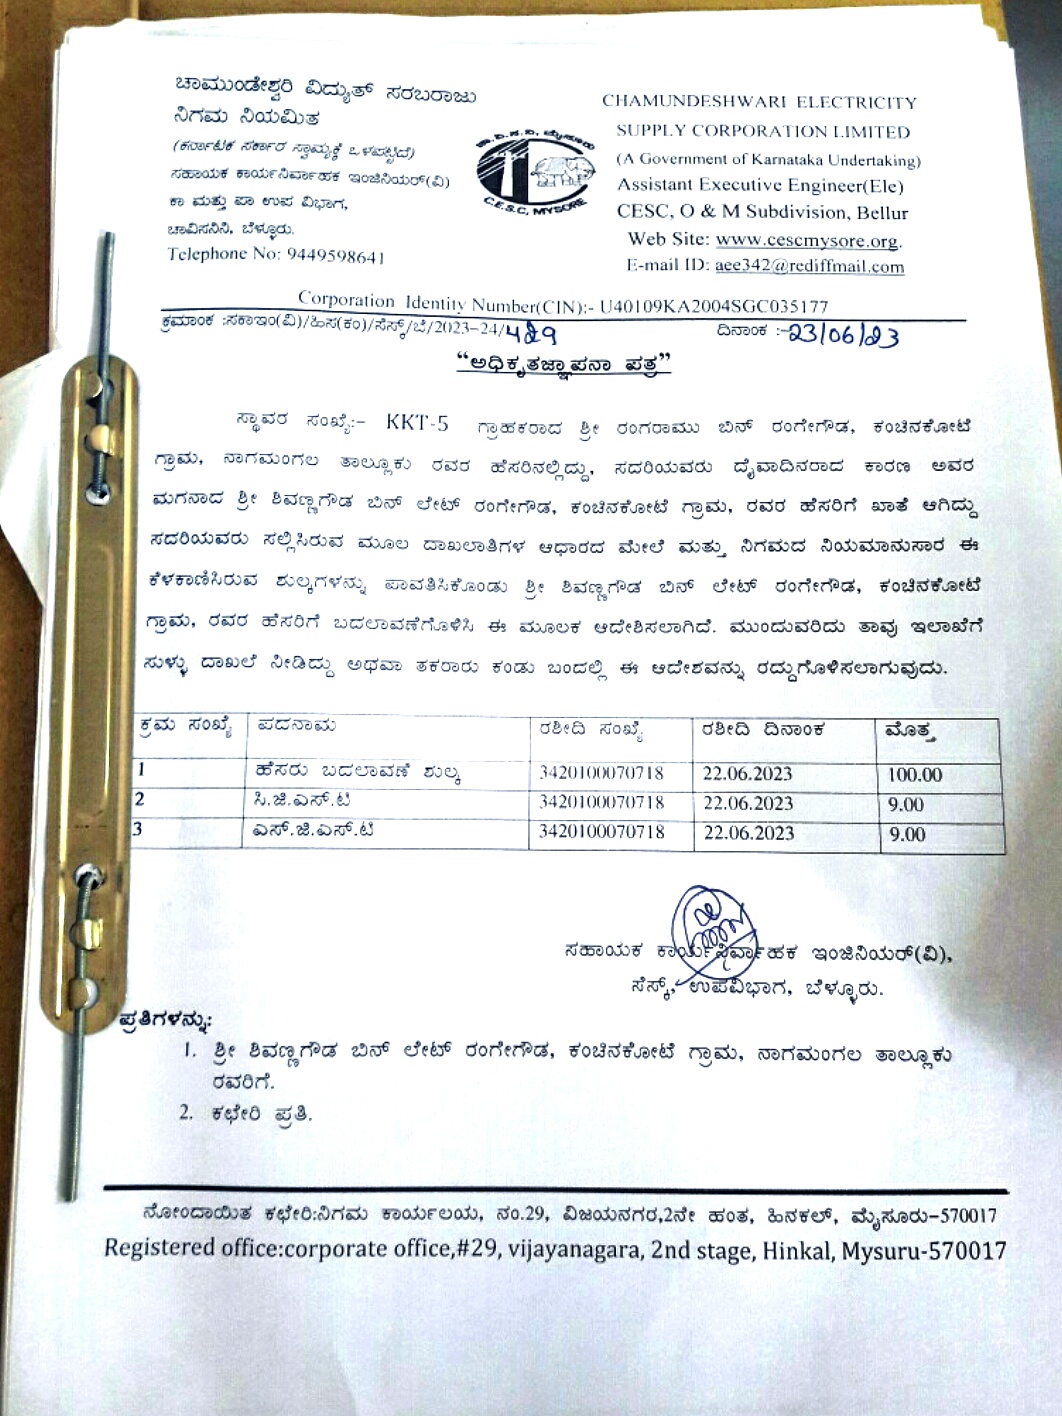 ಚಾಮುಂಡೇಶ್ವರಿ ವಿದ್ಯುತ್ ಸರಬರಾಜು
ನಿಗಮ ನಿಯಮಿತ
(ಕರ್ನಾಟಕ ಸರ್ಕಾರ ಸ್ವಾಮ್ಯಕ್ಕೆ ಒಳಪಟ್ಟಿದೆ)
ಸಹಾಯಕ ಕಾರ್ಯನಿರ್ವಾಹಕ ಇಂಜಿನಿಯರ್(ವಿ)
ಕಾ ಮತ್ತು ಪಾ ಉಪ ವಿಭಾಗ,
ಚಾವಿಸನಿನಿ, ಬೆಳ್ಳೂರು.
Telephone No: 9449598641
ಚಾ.ವಿ.ಸ.ನಿ, ಮೈಸೂರು
C.E.S.C, MYSORE
CHAMUNDESHWARI ELECTRICITY
SUPPLY CORPORATION LIMITED
(A Government of Karnataka Undertaking)
Assistant Executive Engineer(Ele)
CESC, O & M Subdivision, Bellur
Web Site: www.cescmysore.org.
E-mail ID: aee342@rediffmail.com
Corporation Identity Number(CIN):- U40109KA2004SGC035177
ಕ್ರಮಾಂಕ :ಸಕಾಇಂ(ವಿ)/ಹಿಸ(ಕಂ)/ಸೆಸ್ಕ್/ಬೆ/2023-24/429 ದಿನಾಂಕ :-23/06/23
“ಅಧಿಕೃತಜ್ಞಾಪನಾ ಪತ್ರ”
ಸ್ಥಾವರ ಸಂಖ್ಯೆ:- KKT-5 ಗ್ರಾಹಕರಾದ ಶ್ರೀ ರಂಗರಾಮು ಬಿನ್ ರಂಗೇಗೌಡ, ಕಂಚಿನಕೋಟೆ
ಗ್ರಾಮ, ನಾಗಮಂಗಲ ತಾಲ್ಲೂಕು ರವರ ಹೆಸರಿನಲ್ಲಿದ್ದು, ಸದರಿಯವರು ದೈವಾದಿನರಾದ ಕಾರಣ ಅವರ
ಮಗನಾದ ಶ್ರೀ ಶಿವಣ್ಣಗೌಡ ಬಿನ್ ಲೇಟ್ ರಂಗೇಗೌಡ, ಕಂಚಿನಕೋಟೆ ಗ್ರಾಮ, ರವರ ಹೆಸರಿಗೆ ಖಾತೆ ಆಗಿದ್ದು
ಸದರಿಯವರು ಸಲ್ಲಿಸಿರುವ ಮೂಲ ದಾಖಲಾತಿಗಳ ಆಧಾರದ ಮೇಲೆ ಮತ್ತು ನಿಗಮದ ನಿಯಮಾನುಸಾರ ಈ
ಕೆಳಕಾಣಿಸಿರುವ ಶುಲ್ಕಗಳನ್ನು ಪಾವತಿಸಿಕೊಂಡು ಶ್ರೀ ಶಿವಣ್ಣಗೌಡ ಬಿನ್ ಲೇಟ್ ರಂಗೇಗೌಡ, ಕಂಚಿನಕೋಟೆ
ಗ್ರಾಮ, ರವರ ಹೆಸರಿಗೆ ಬದಲಾವಣೆಗೊಳಿಸಿ ಈ ಮೂಲಕ ಆದೇಶಿಸಲಾಗಿದೆ. ಮುಂದುವರಿದು ತಾವು ಇಲಾಖೆಗೆ
ಸುಳ್ಳು ದಾಖಲೆ ನೀಡಿದ್ದು ಅಥವಾ ತಕರಾರು ಕಂಡು ಬಂದಲ್ಲಿ ಈ ಆದೇಶವನ್ನು ರದ್ದುಗೊಳಿಸಲಾಗುವುದು.
ಕ್ರಮ ಸಂಖ್ಯೆ ಪದನಾಮ ರಶೀದಿ ಸಂಖ್ಯೆ ರಶೀದಿ ದಿನಾಂಕ ಮೊತ್ತ
1 ಹೆಸರು ಬದಲಾವಣೆ ಶುಲ್ಕ 3420100070718 22.06.2023 100.00
2 ಸಿ.ಜಿ.ಎಸ್.ಟಿ 3420100070718 22.06.2023 9.00
3 ಎಸ್.ಜಿ.ಎಸ್.ಟಿ 3420100070718 22.06.2023 9.00
ಸಹಾಯಕ ಕಾರ್ಯನಿರ್ವಾಹಕ ಇಂಜಿನಿಯರ್(ವಿ),
ಸೆಸ್ಕ್, ಉಪವಿಭಾಗ, ಬೆಳ್ಳೂರು.
ಪ್ರತಿಗಳನ್ನು:
1. ಶ್ರೀ ಶಿವಣ್ಣಗೌಡ ಬಿನ್ ಲೇಟ್ ರಂಗೇಗೌಡ, ಕಂಚಿನಕೋಟೆ ಗ್ರಾಮ, ನಾಗಮಂಗಲ ತಾಲ್ಲೂಕು
ರವರಿಗೆ.
2. ಕಛೇರಿ ಪ್ರತಿ.
ನೋಂದಾಯಿತ ಕಛೇರಿ:ನಿಗಮ ಕಾರ್ಯಲಯ, ನಂ.29, ವಿಜಯನಗರ,2ನೇ ಹಂತ, ಹಿನಕಲ್, ಮೈಸೂರು-570017
Registered office:corporate office,#29, vijayanagara, 2nd stage, Hinkal, Mysuru-570017